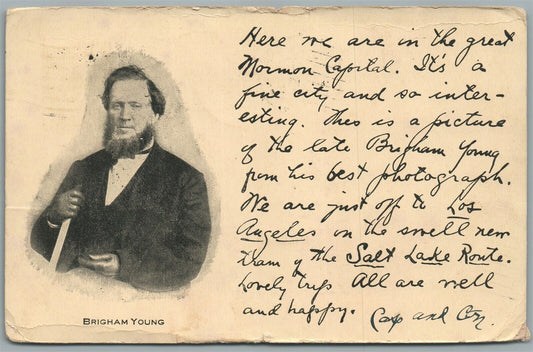 Here we are in the great
Mormon Capital. It's a
fine city and so inter-
esting. This is a picture
of the late Brigham Young
from his best photograph.
We are just off to Los
Angeles on the swell new
train of the Salt Lake Route.
Lovely trip. All are well
and happy.
and
BRIGHAM YOUNG